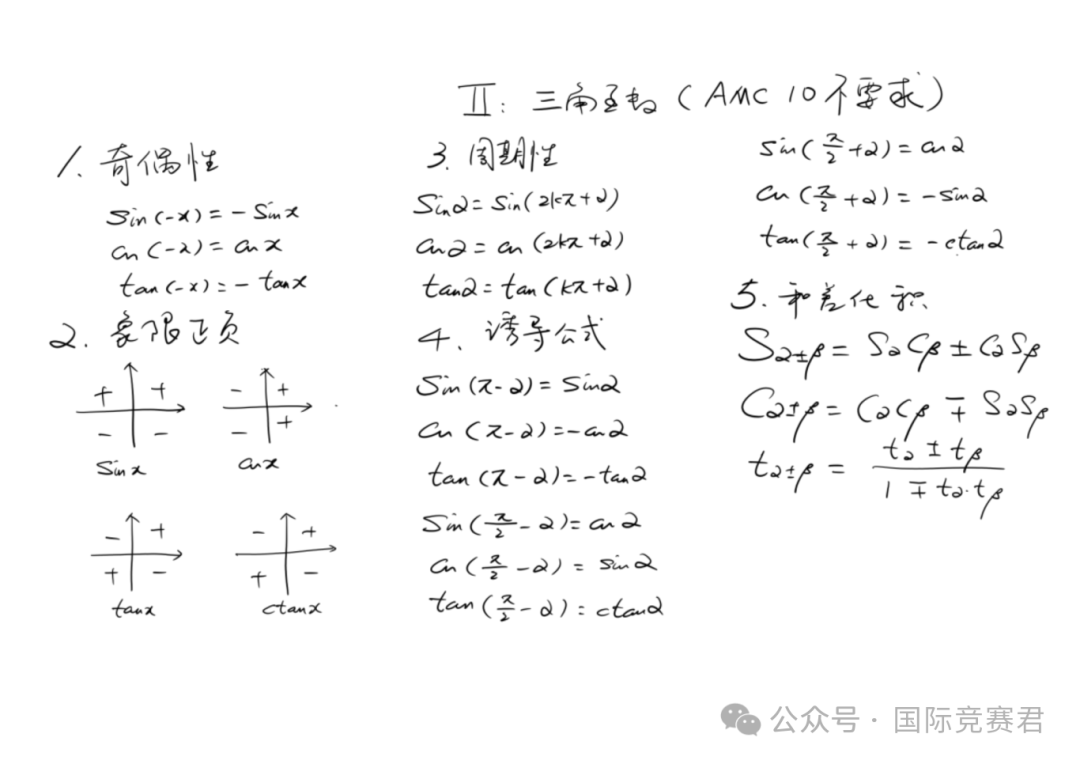 Ⅱ: 三角函数 (AMC 10 不要求)
1. 奇偶性
sin(-x) = -sinx
cos(-x) = cosx
tan(-x) = -tanx
2. 象限正负
+ +
- -
sinx
- +
- +
cosx
- +
+ -
tanx
- +
+ -
ctanx
3. 周期性
sinα = sin(2kπ+α)
cosα = cos(2kπ+α)
tanα = tan(kπ+α)
4. 诱导公式
sin(π-α) = sinα
cos(π-α) = -cosα
tan(π-α) = -tanα
sin(π/2-α) = cosα
cos(π/2-α) = sinα
tan(π/2-α) = ctanα
sin(π/2+α) = cosα
cos(π/2+α) = -sinα
tan(π/2+α) = -ctanα
5. 和差化积
Sα±β = SαCβ ± CαSβ
Cα±β = CαCβ ∓ SαSβ
tα±β = (tα ± tβ)/(1 ∓ tα·tβ)
公众号 · 国际竞赛君